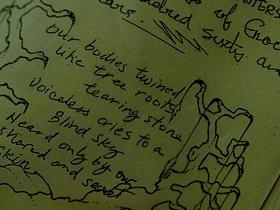 NTERS
of Enoc
ndred sixty an
ears.
our bodies twined
like tree roots
tearing stone
Voiceless cries to a
Blind sky
Heard only by our
shared and
skin